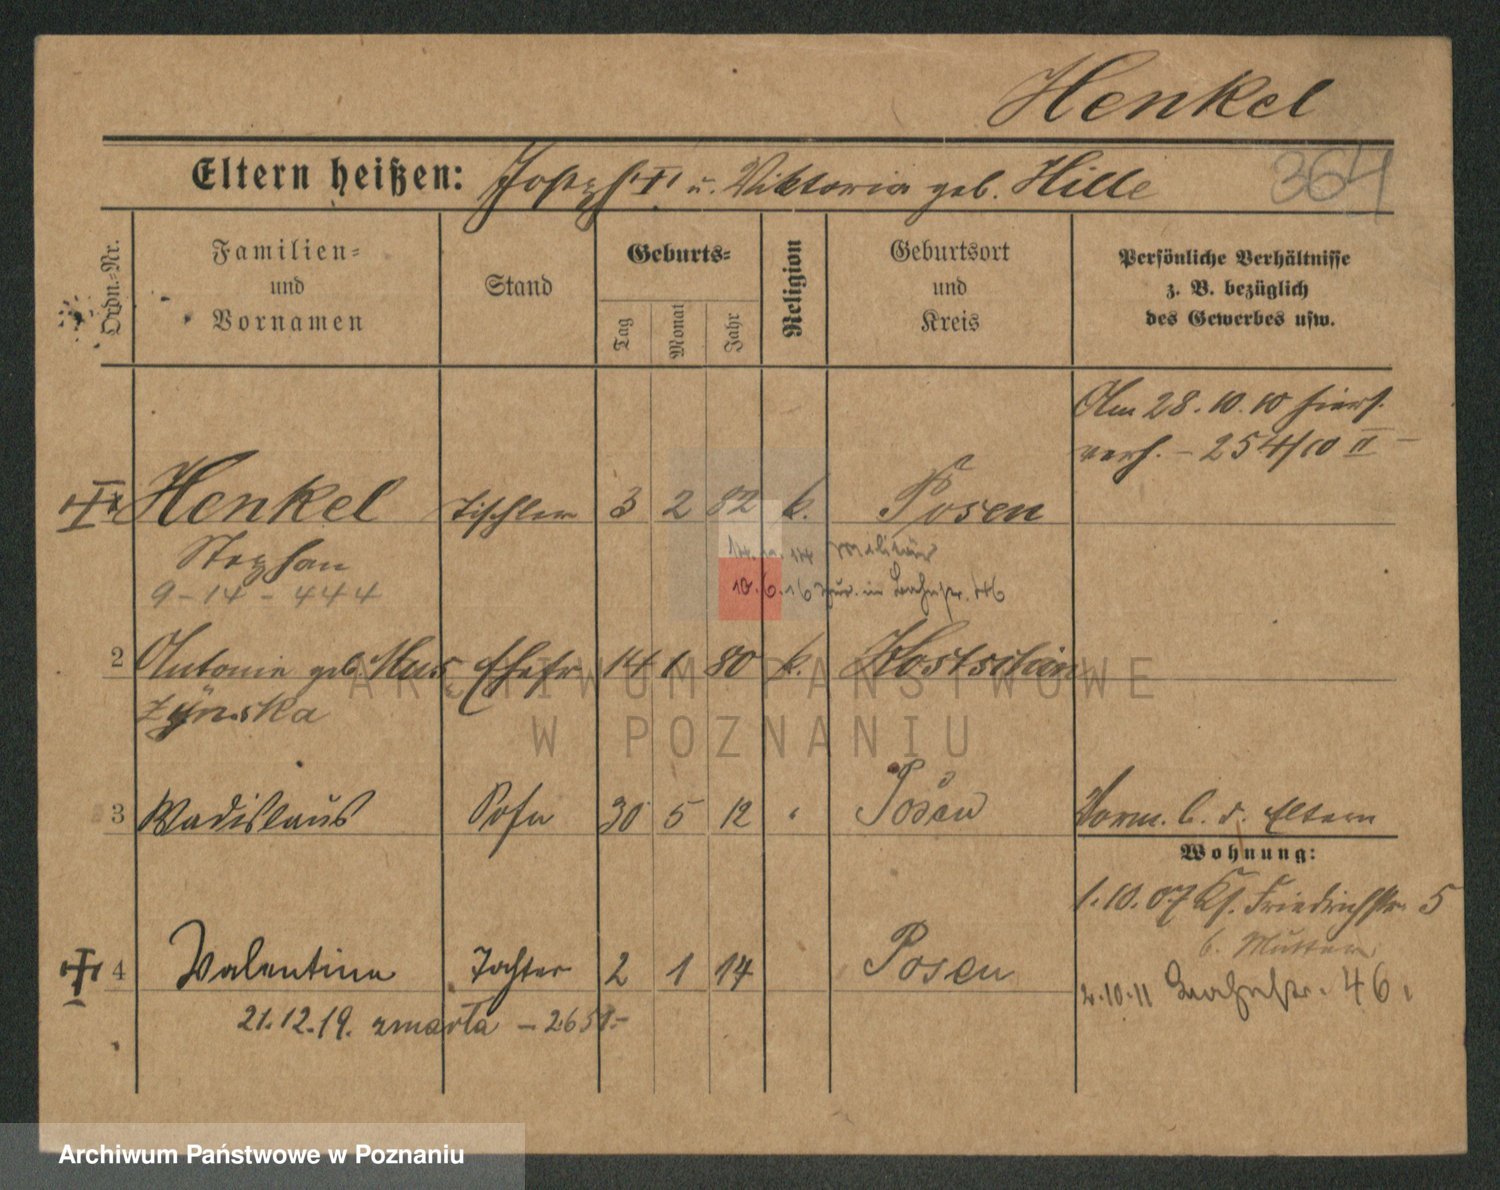 Henkel
Eltern heißen: Joseph u. Viktoria geb. Hille
364
Ordn.-Nr.
Familien-
und
Vornamen
Stand
Geburts-
Tag
Monat
Jahr
Religion
Geburtsort
und
Kreis
Persönliche Verhältnisse
z. B. bezüglich
des Gewerbes usw.
Am 28.10.10 hiers.
verh. - 254/10 II -
Henkel Tischler 3 2 82 k. Posen
Stephan
14. 14 Militär
9-14-444
10.6.16 zur. in Bahnstr. 46
2 Antonie geb. Mus Ehefr 14 1 80 k. Kostschin
żÿnska
3 Wadislaus Sohn 30 5 12 " Posen Vorm. b. d. Eltern
Wohnung:
1.10.07 Kl. Friedrichstr. 5
b. Mutter
4 Valentine Tochter 2 1 14 Posen
2.10.11 Bahnstr. 46.
21.12.19. zmarła - 2651.-
ARCHIWUM PAŃSTWOWE
W POZNANIU
Archiwum Państwowe w Poznaniu